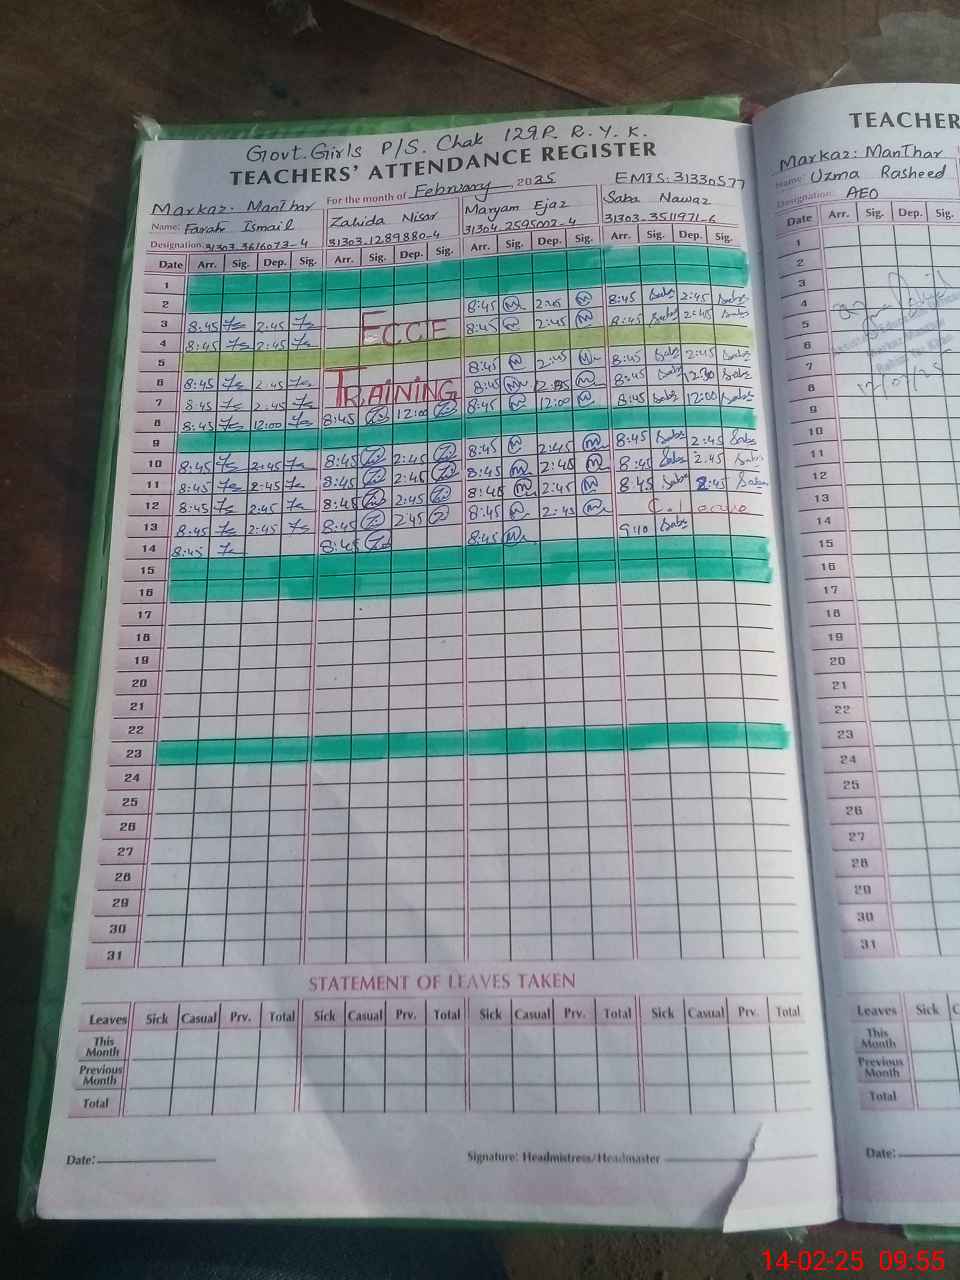 Govt. Girls P/S. Chak 129P. R.Y.K.
TEACHERS' ATTENDANCE REGISTER
For the month of February 2025 EMIS: 31330577
Markaz. Manthar
Name: Farah Ismail Zahida Nisar Maryam Ejaz Saba Nawaz
Designation: 31303-3616073-4 31303-1289880-4 31304-2595002-4 31303-3511971-6
Date Arr. Sig. Dep. Sig. Arr. Sig. Dep. Sig. Arr. Sig. Dep. Sig. Arr. Sig. Dep. Sig.
1
2
3 8:45 2:45 8:45 2:45 8:45 Saba 2:45 Saba
4 8:45 2:45 ECCE 8:45 2:45 8:45 Saba 2:45 Saba
5
6 8:45 2:45 TRAINING 8:45 2:45 8:45 Saba 2:45 Saba
7 8:45 2:45 8:45 8:45 Saba 12:30 Saba
8 8:45 12:00 8:45 12:00 8:45 12:00 8:45 Saba 12:00 Saba
9
10 8:45 2:45 8:45 2:45 8:45 2:45 8:45 Saba 2:45 Saba
11 8:45 2:45 8:45 2:45 8:45 2:45 8:45 Saba 2:45 Saba
12 8:45 2:45 8:45 2:45 8:45 2:45 8:45 Saba 2:45 Saba
13 8:45 2:45 8:45 2:45 8:45 2:45 C. Leave
14 8:45 8:45 8:45 9:10 Saba
15
16
17
18
19
20
21
22
23
24
25
26
27
28
29
30
31
STATEMENT OF LEAVES TAKEN
Leaves Sick Casual Prv. Total Sick Casual Prv. Total Sick Casual Prv. Total Sick Casual Prv. Total
This Month
Previous Month
Total
Date: Signature: Headmistress/Headmaster
TEACHER
Markaz: Manthar
Name: Uzma Rasheed
Designation: AEO
Date Arr. Sig. Dep. Sig.
1
2
3
4
5
6
7
8
9
10
11
12
13
14
15
16
17
18
19
20
21
22
23
24
25
26
27
28
29
30
31
Leaves Sick
This Month
Previous Month
Total
Date:
14-02-25 09:55